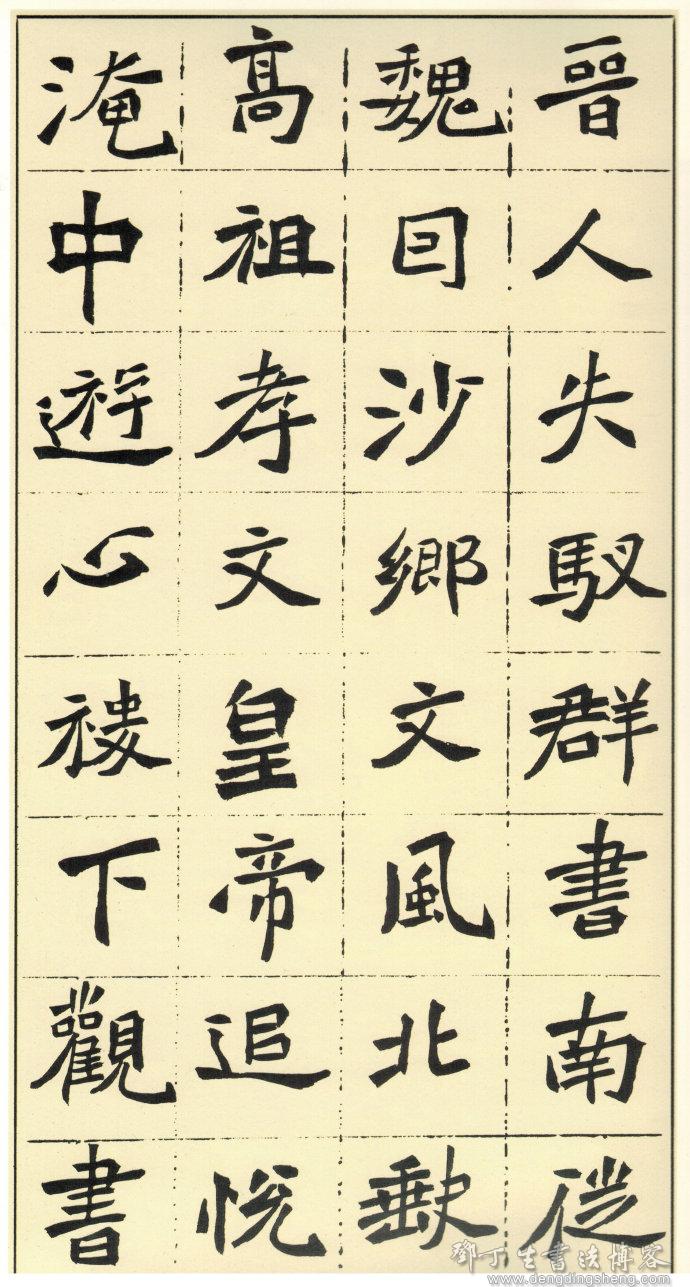 晉人失馭群書南徙
魏囙沙鄉文風北缺
高祖孝文皇帝追悅
淹中遊心稷下觀書
鄧丁生書法博客
www.dengdingsheng.com